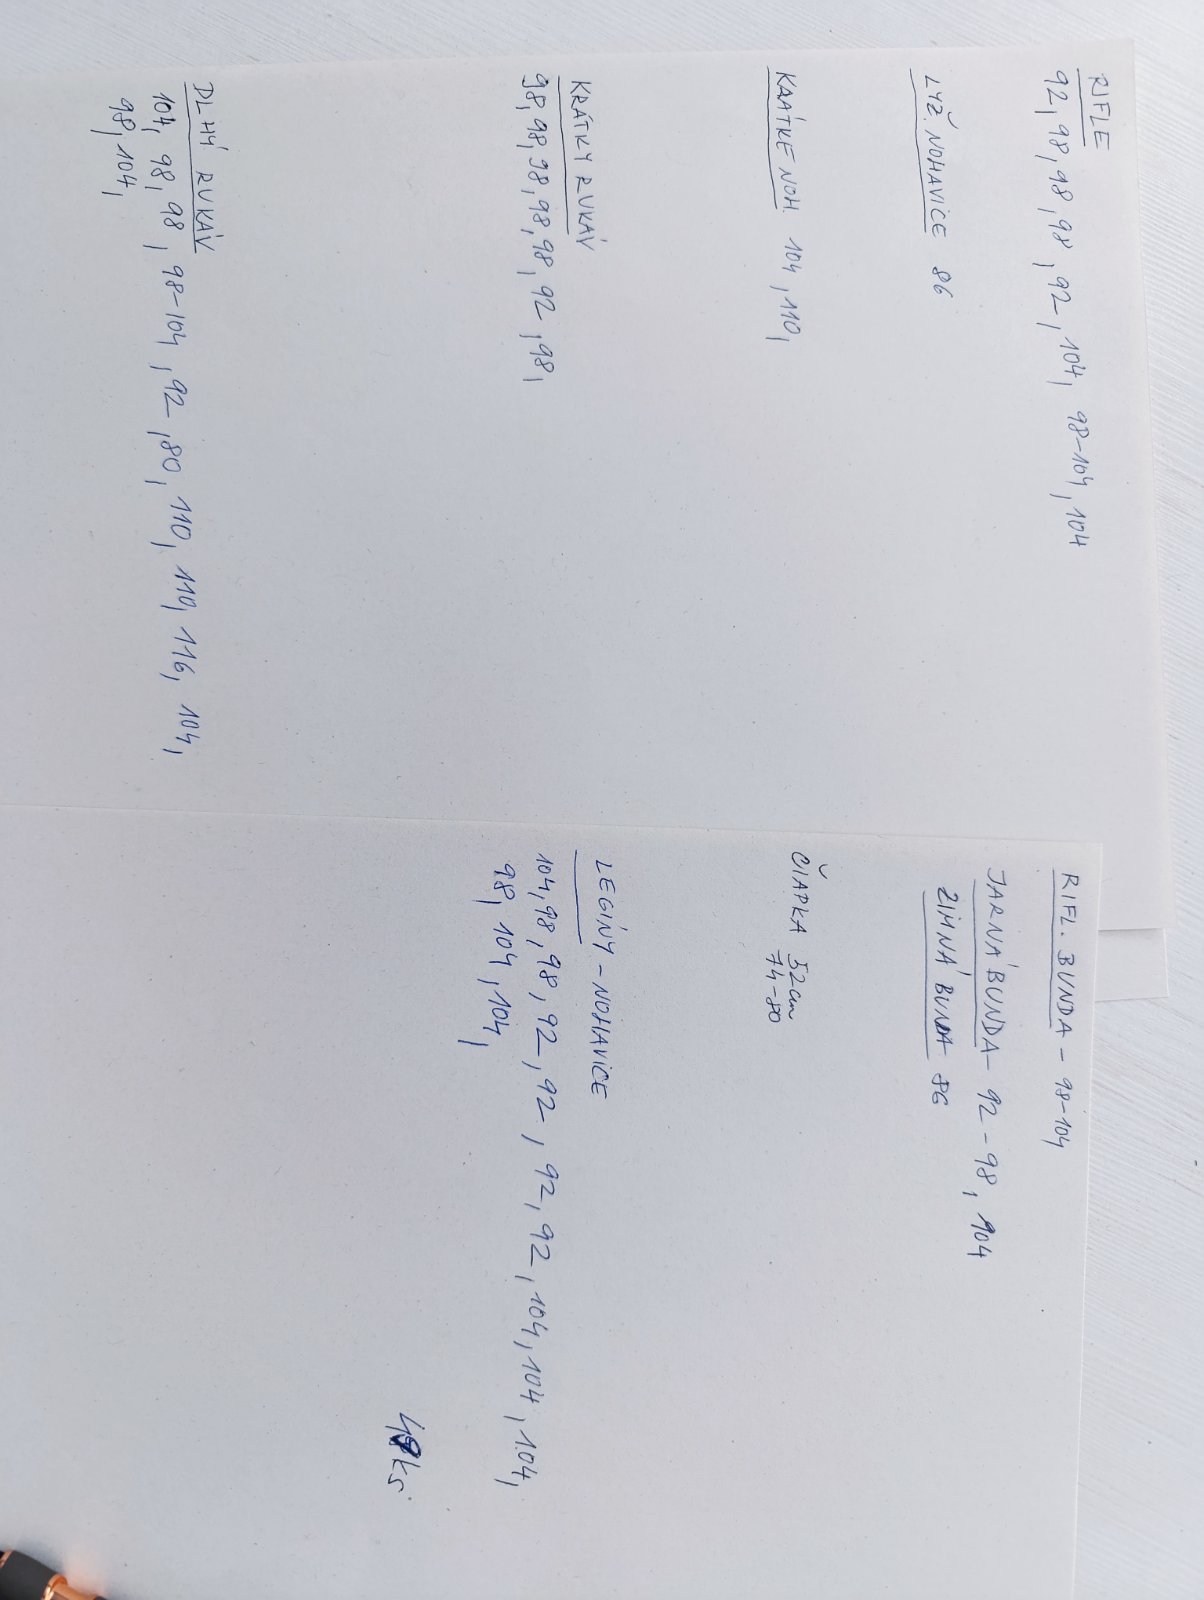 RIFLE
92, 98, 98, 98, 92, 104, 98-104, 104
LYŽ. NOHAVICE 86
KRÁTKE NOH. 104, 110,
KRÁTKY RUKÁV
98, 98, 98, 98, 98, 92, 98,
DLHÝ RUKÁV
104, 98, 98, 98-104, 92, 80, 110, 110, 116, 104,
98, 104,
RIFL. BUNDA - 98-104
JARNÁ BUNDA - 92 - 98, 104
ZIMNÁ BUNDA 86
ČIAPKA 52cm
74-80
LEGÍNY - NOHAVICE
104, 98, 98, 92, 92, 92, 92, 104, 104, 104,
98, 104, 104,
ks